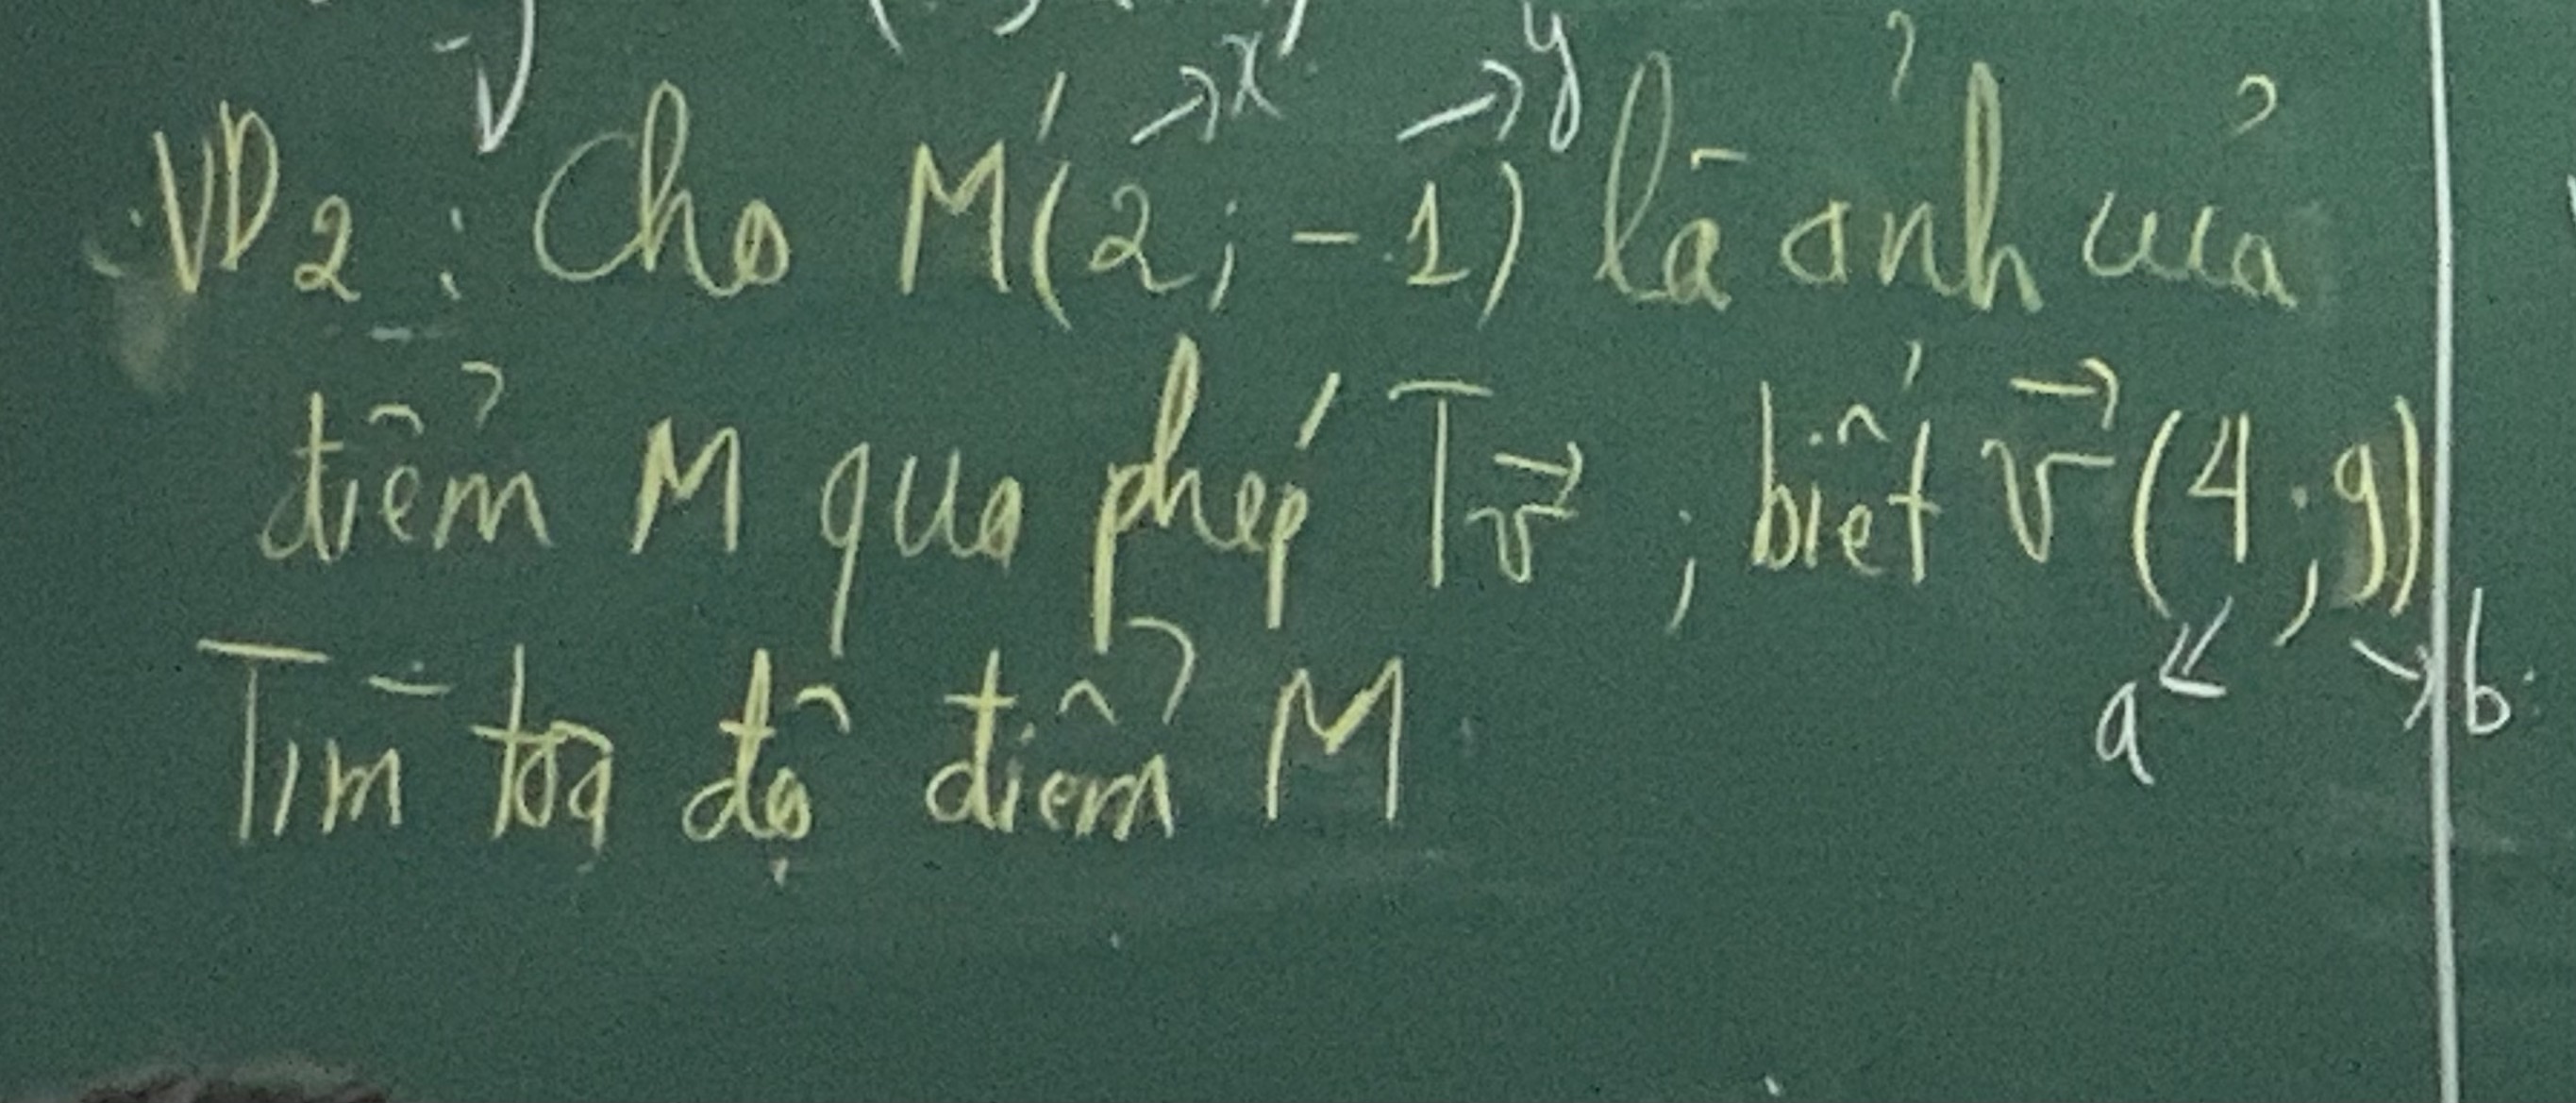 x' y'
VD2: Cho M'(2; -1) là ảnh của
điểm M qua phép T_v⃗ ; biết v⃗ (4; 9)
a b
Tìm toạ độ điểm M